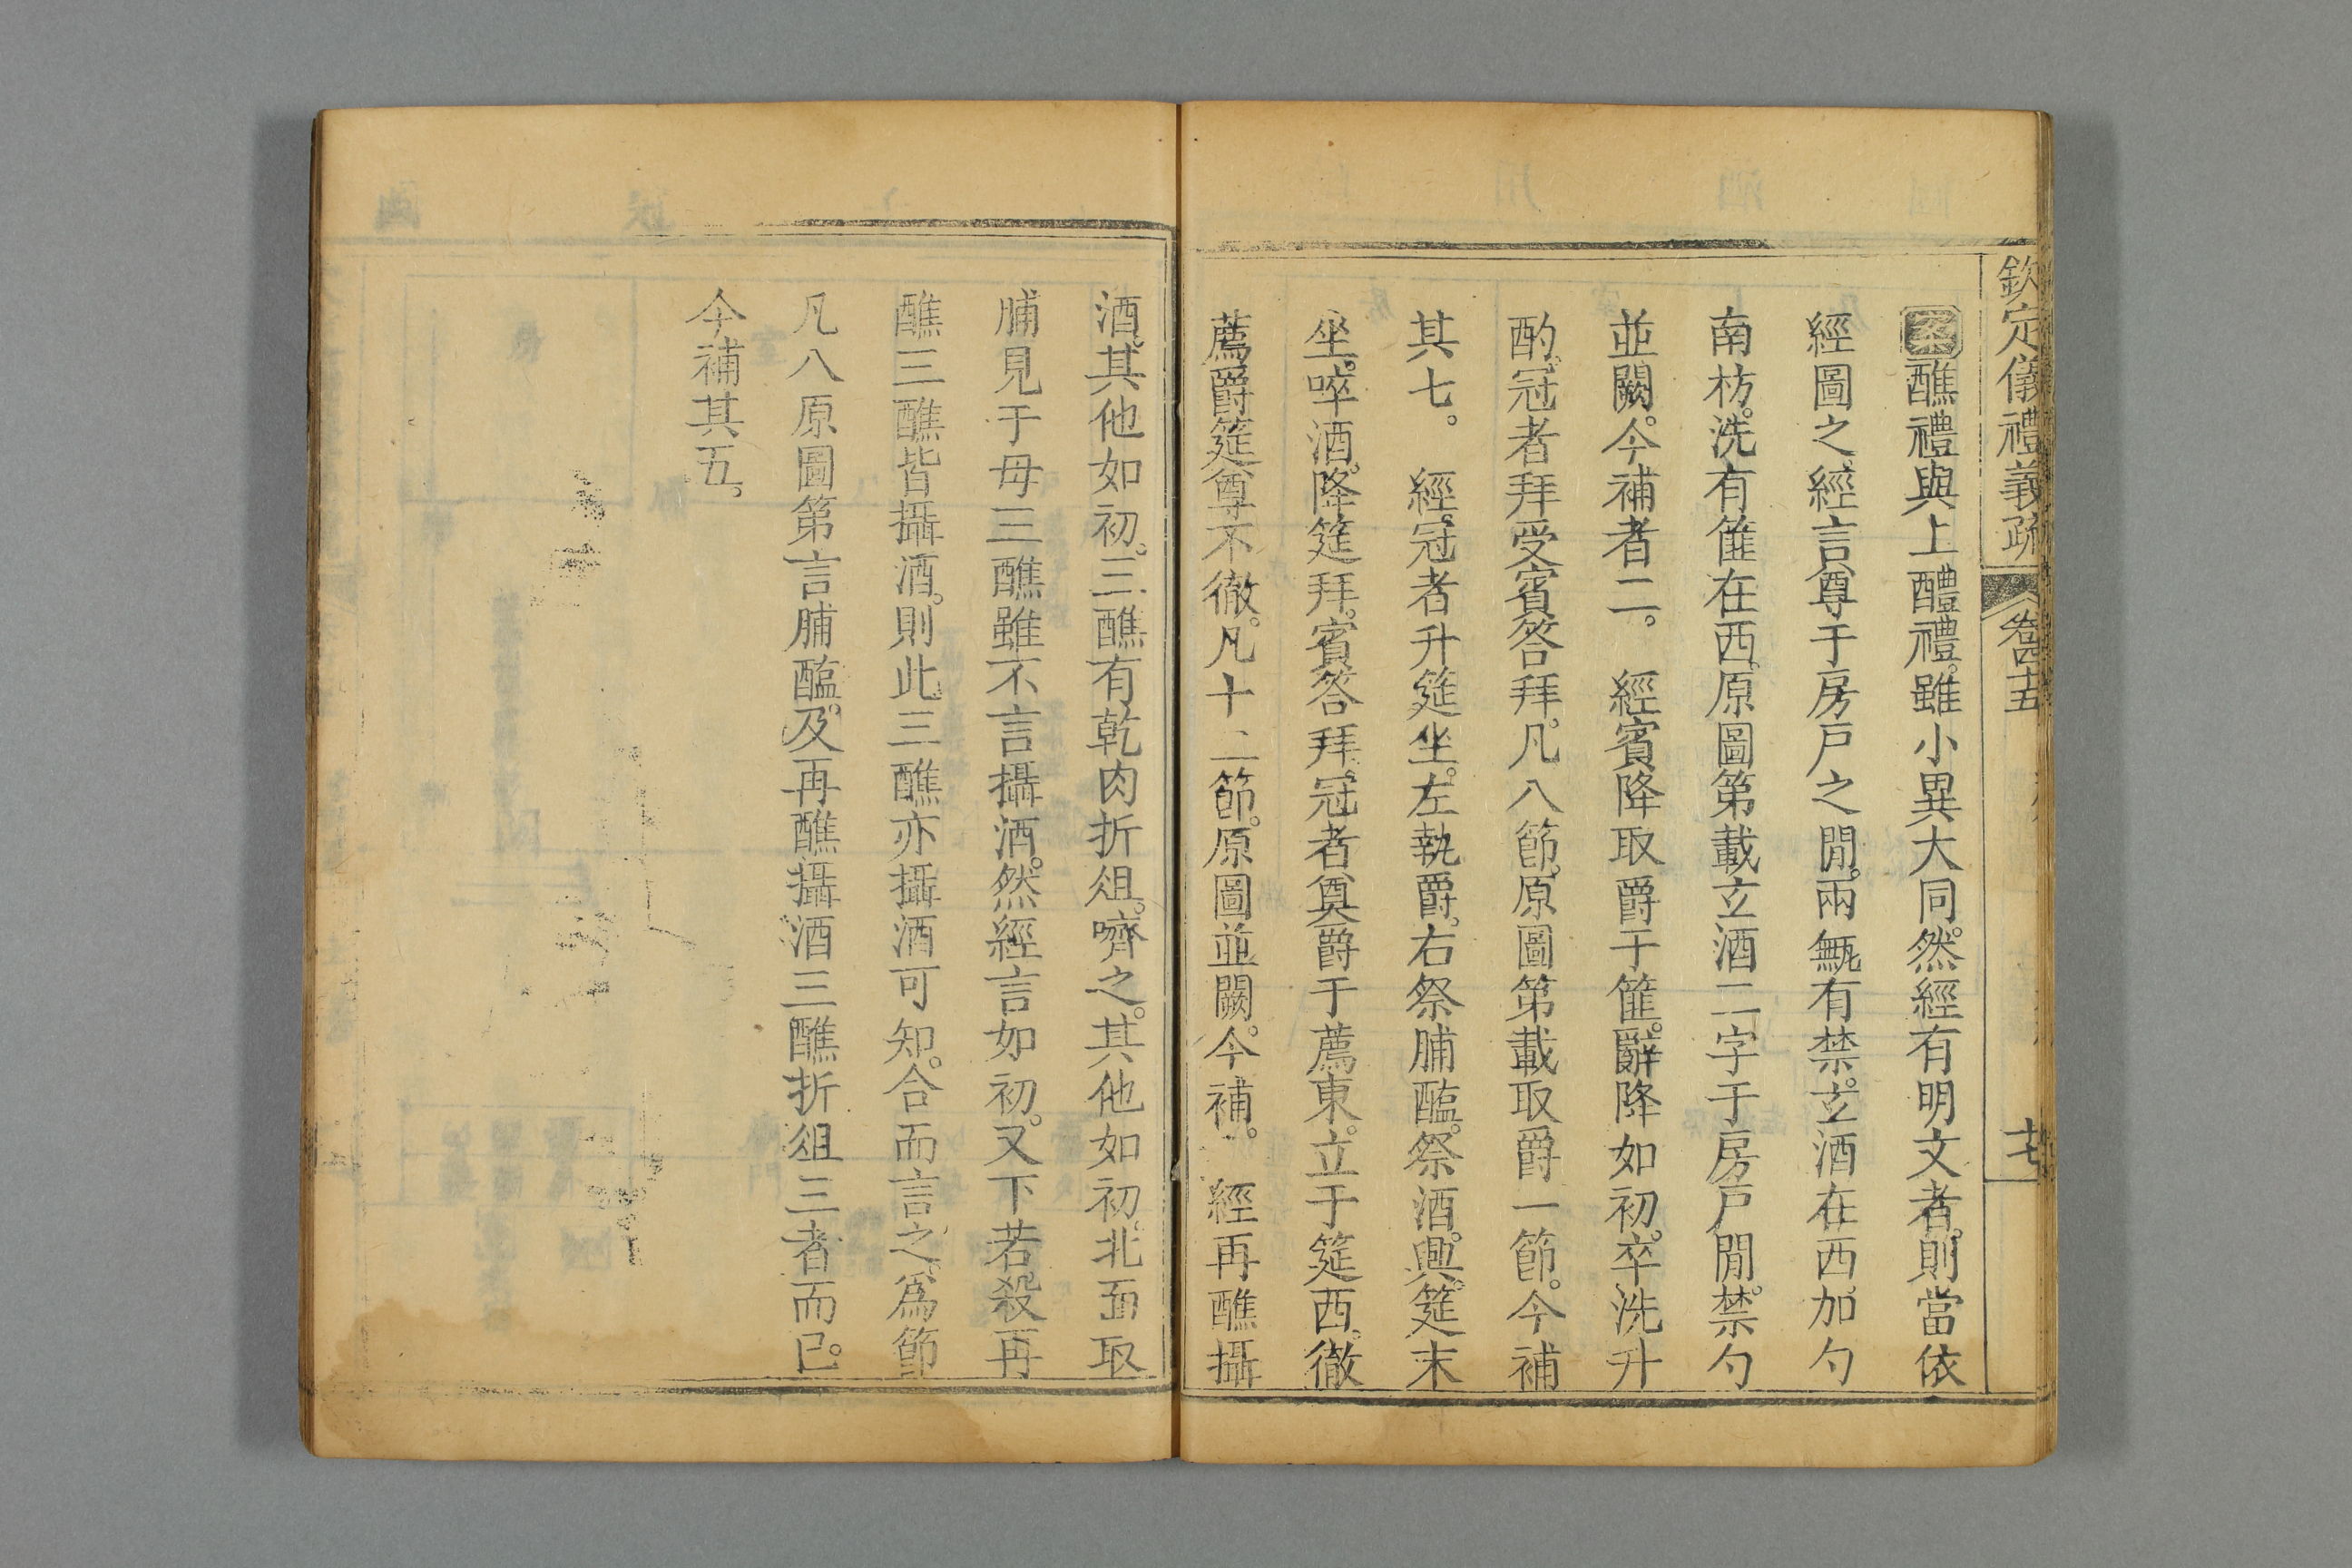 欽定儀禮義疏 卷四十五 十七
案醮禮與上醴禮。雖小異大同。然經有明文者。則當依
經圖之。經言尊于房戶之閒。兩甒有禁。玄酒在西。加勺
南枋。洗有篚在西。原圖第載玄酒二字于房戶閒。禁勺
並闕。今補者二。　經賓降取爵于篚。辭降如初。卒洗升
酌。冠者拜受賓答拜。凡八節。原圖第載取爵一節。今補
其七。　經。冠者升筵坐。左執爵。右祭脯醢。祭酒。興。筵末
坐。啐酒。降筵拜。賓答拜。冠者奠爵于薦東。立于筵西。徹
薦爵筵尊不徹。凡十二節。原圖並闕。今補。　經再醮攝
酒。其他如初。三醮有乾肉折俎。嚌之。其他如初。北面取
脯見于母三醮雖不言攝酒。然經言如初。又下若殺再
醮三醮皆攝酒。則此三醮亦攝酒可知。合而言之。爲節
凡八原圖第言脯醢。及再醮攝酒三醮折俎三者而已。
今補其五。